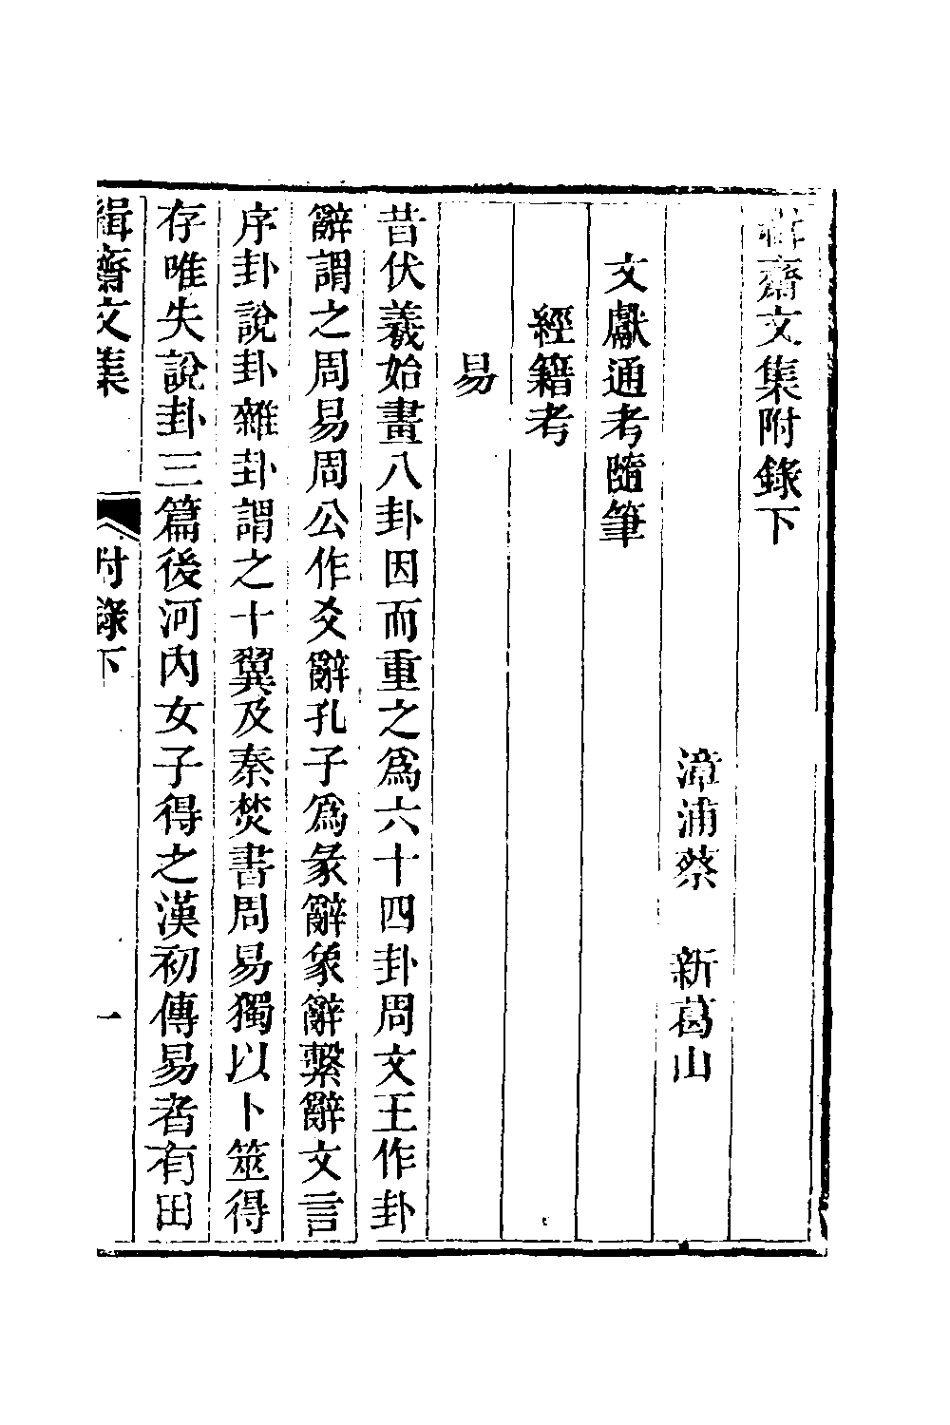 緝齋文集附錄下
漳浦蔡　新葛山
文獻通考隨筆
經籍考
易
昔伏羲始畫八卦因而重之爲六十四卦周文王作卦
辭謂之周易周公作爻辭孔子爲彖辭象辭繫辭文言
序卦說卦雜卦謂之十翼及秦焚書周易獨以卜筮得
存唯失說卦三篇後河內女子得之漢初傳易者有田
緝齋文集　附錄下　一